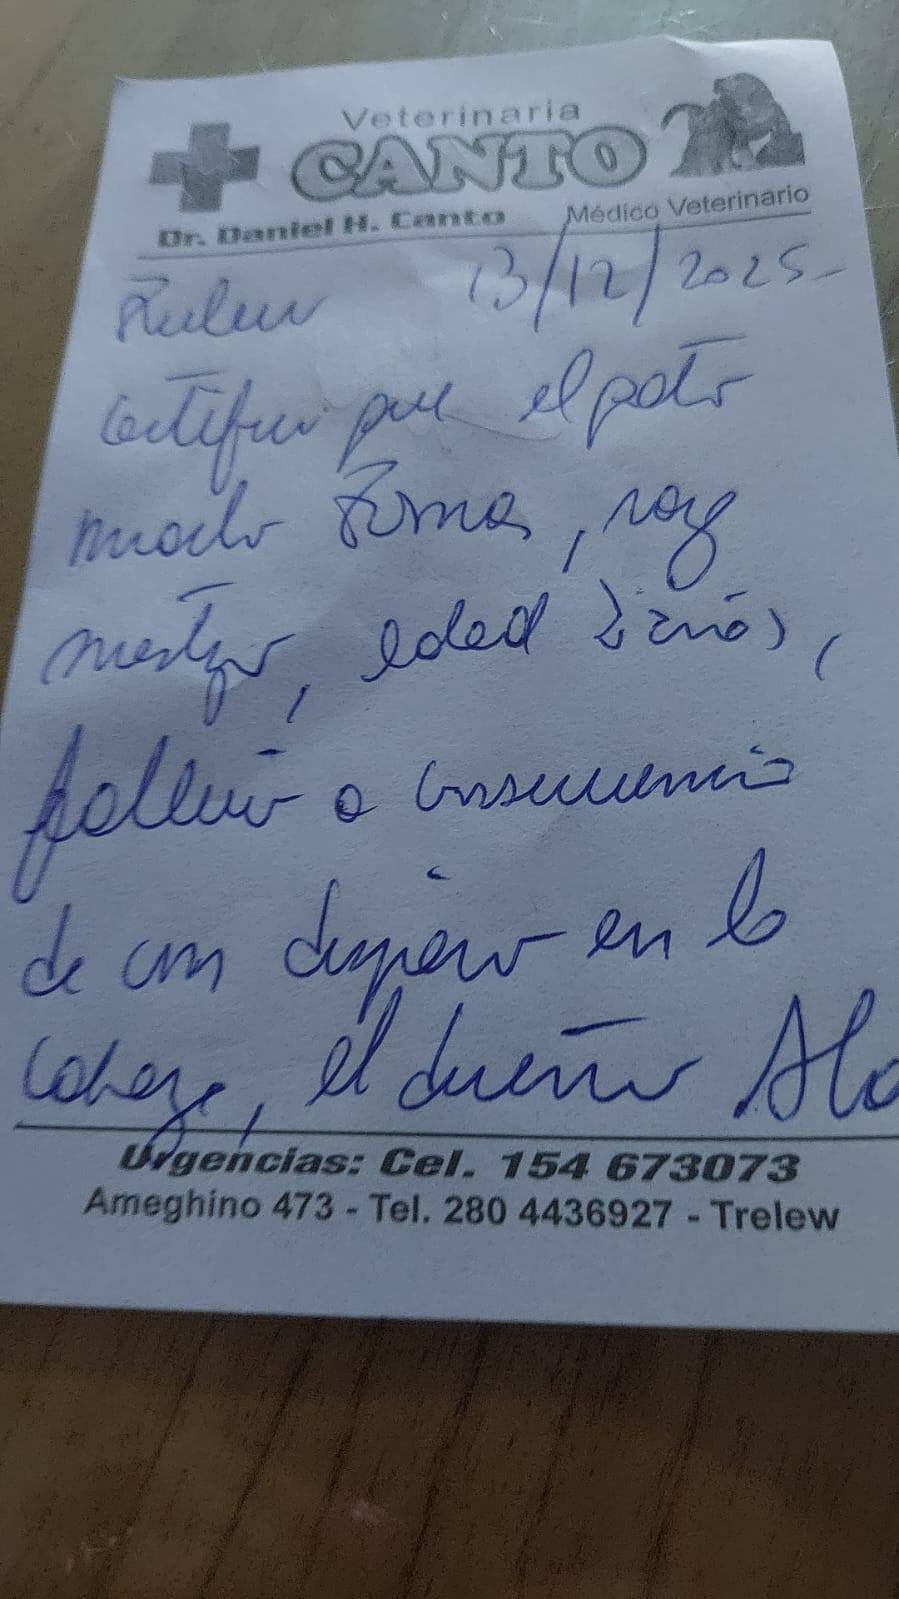 Veterinaria
CANTO
Dr. Daniel H. Canto Médico Veterinario
Trelew 13/12/2025-
Certifico que el gato
macho , raza
mestizo, edad 2 años,
falleció a consecuencia
de un disparo en la
cabeza, el dueño
Urgencias: Cel. 154 673073
Ameghino 473 - Tel. 280 4436927 - Trelew